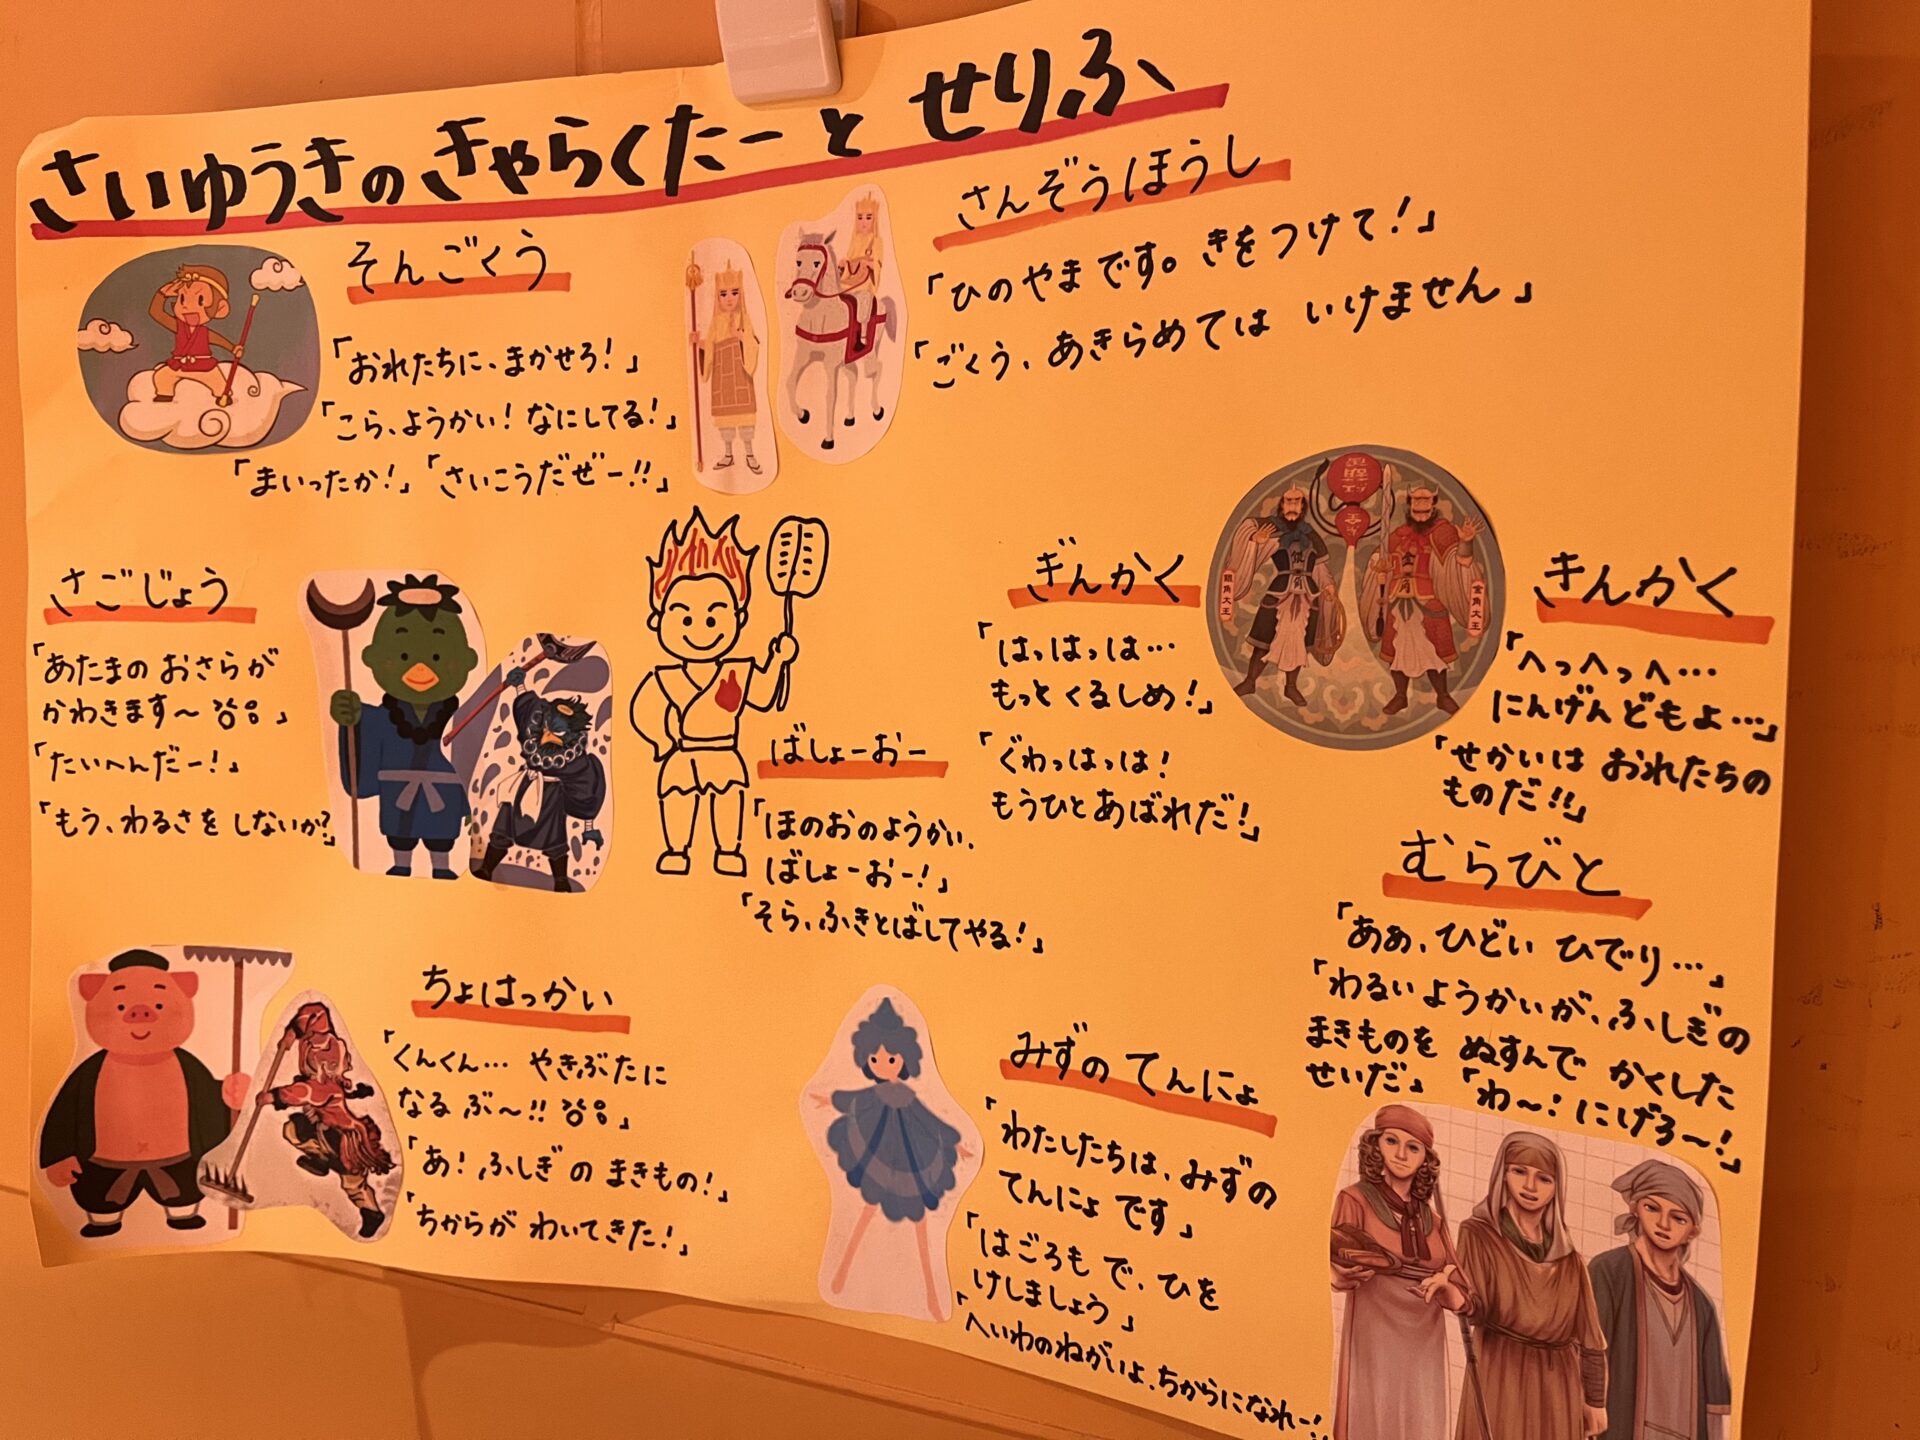 さいゆうきのきゃらくたーと せりふ
そんごくう
「おれたちに、まかせろ!」
「こら、ようかい!なにしてる!」
「まいったか!」「さいこうだぜー!!」
さんぞうほうし
「ひのやまです。きをつけて!」
「ごくう、あきらめては いけません」
さごじょう
「あたまの おさらが
かわきます〜
「たいへんだー!」
「もう、わるさを しないか?」
ばしょーおー
「ほのおのようかい、
ばしょーおー!」
「そら、ふきとばしてやる!」
ぎんかく
「はっはっは…
もっと くるしめ!」
「ぐわっはっは!
もうひとあばれだ!」
銀角
金角
銀角大王
金角大王
きんかく
「へっへっへ…
にんげんどもよ…」
「せかいは おれたちの
ものだ!!」
むらびと
「あぁ、ひどい ひでり…」
「わるいようかいが、ふしぎの
まきものを ぬすんで かくした
せいだ」 「わ〜!にげろ〜!」
ちょはっかい
「くんくん… やきぶたに
なるぶ〜!!
「あ!ふしぎの まきもの!」
「ちからが わいてきた!」
みずの てんにょ
「わたしたちは、みずの
てんにょ です」
「はごろもで、ひを
けしましょう」
「へいわのねがいよ、ちからになれー!」